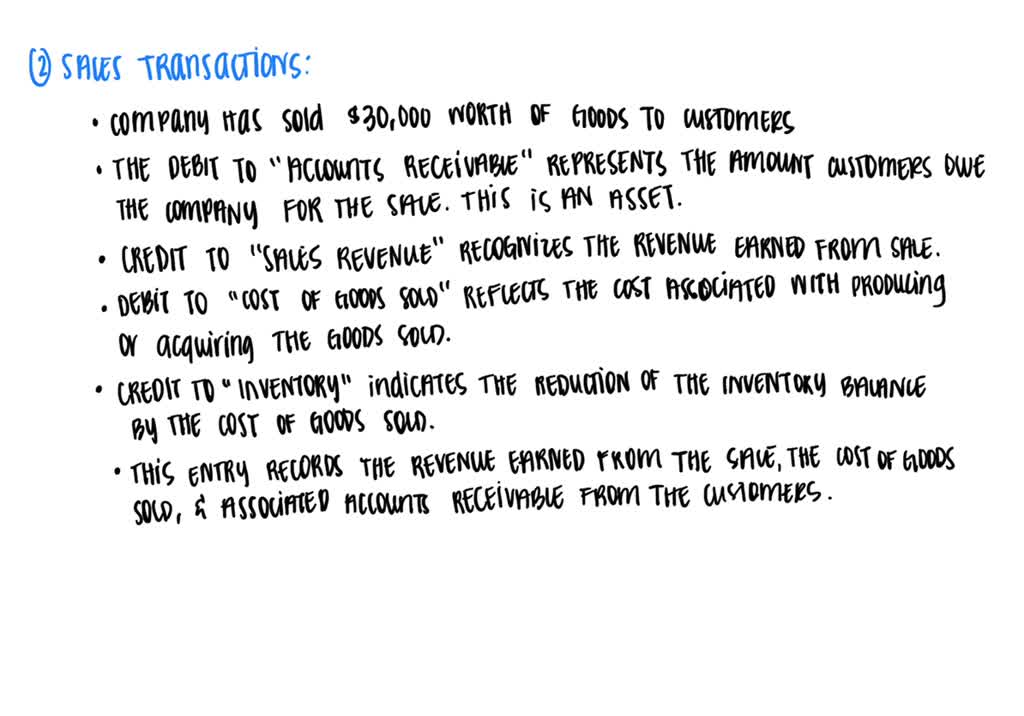 ② SALES TRANSACTIONS:
• COMPANY HAS SOLD $30,000 WORTH OF GOODS TO CUSTOMERS
• THE DEBIT TO "ACCOUNTS RECEIVABLE" REPRESENTS THE AMOUNT CUSTOMERS OWE
THE COMPANY FOR THE SALE. THIS IS AN ASSET.
• CREDIT TO "SALES REVENUE" RECOGNIZES THE REVENUE EARNED FROM SALE.
• DEBIT TO "COST OF GOODS SOLD" REFLECTS THE COST ASSOCIATED WITH PRODUCING
OR acquiring THE GOODS SOLD.
• CREDIT TO "INVENTORY" indicates THE REDUCTION OF THE INVENTORY BALANCE
BY THE COST OF GOODS SOLD.
• THIS ENTRY RECORDS THE REVENUE EARNED FROM THE SALE, THE COST OF GOODS
SOLD, & ASSOCIATED ACCOUNTS RECEIVABLE FROM THE CUSTOMERS.